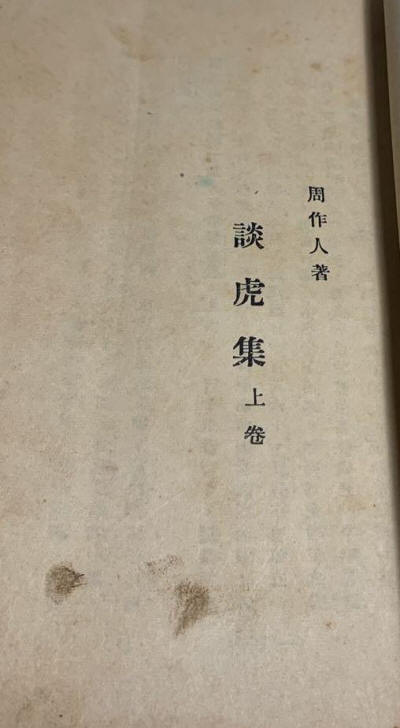 周作人著
談虎集上卷